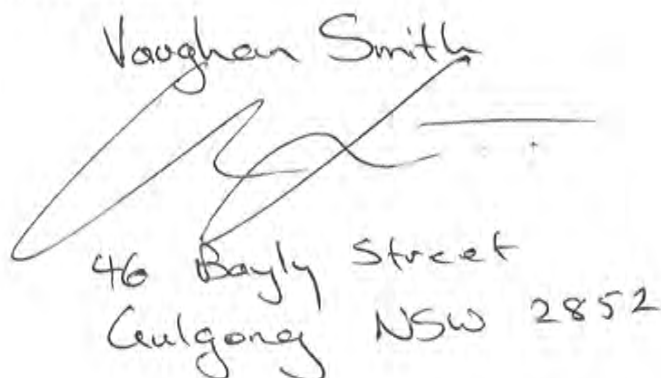 Vaughan Smith
46 Bayly Street
Gulgong NSW 2852